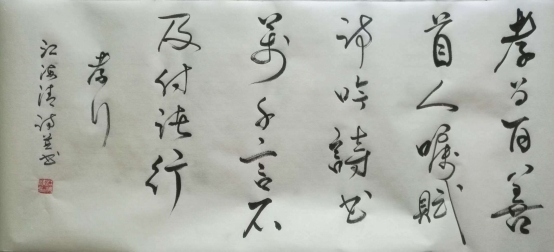 孝为百善
首人嘱赋
诗吟詩书
萬千言不
及付诸行
孝行
江海清诗并书